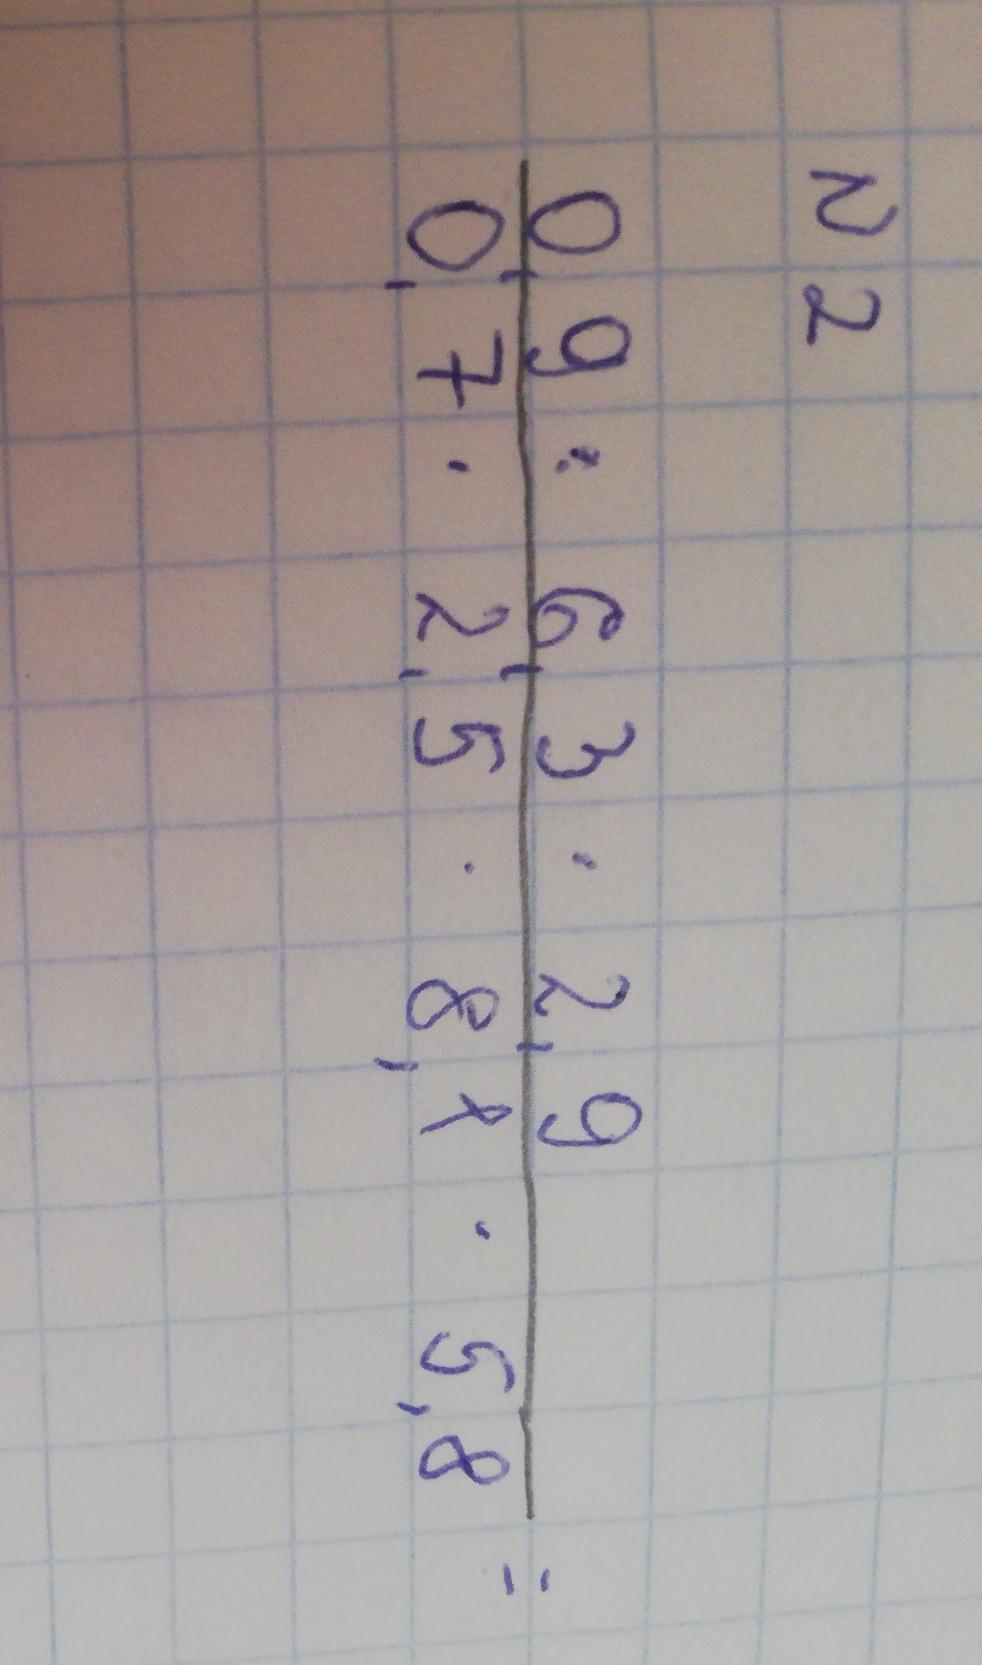 N 2
0,9 · 6,3 · 2,9
0,7 · 2,5 · 8,1 · 5,8 =